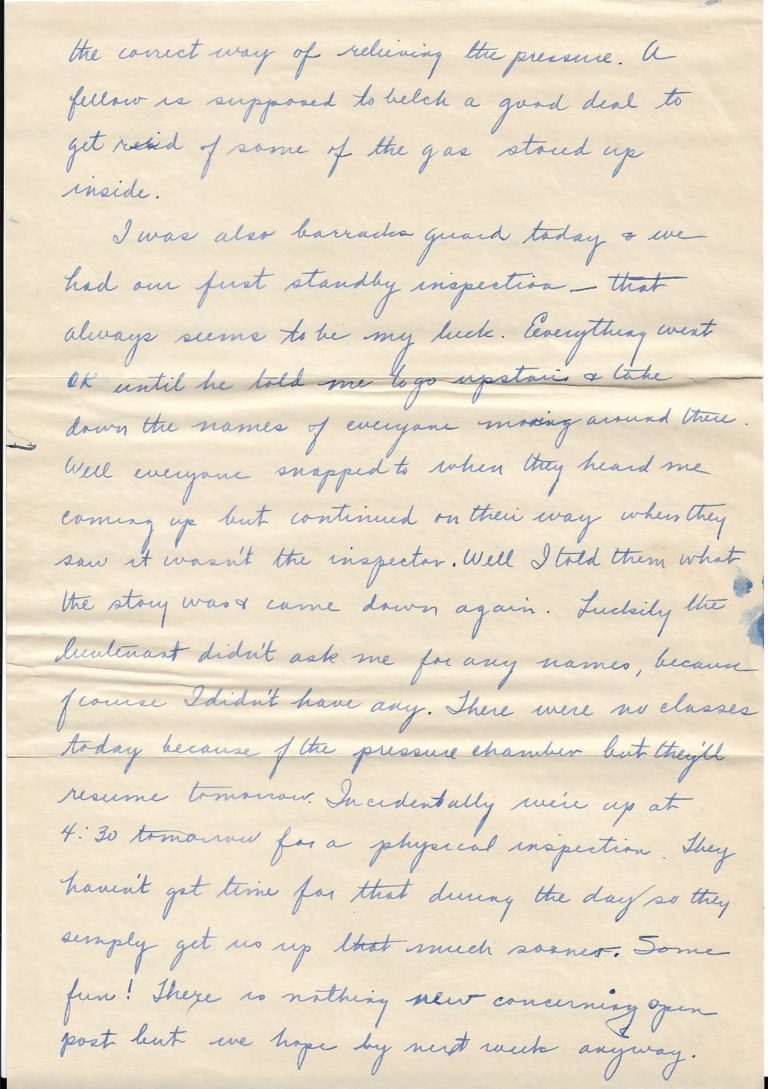 the correct way of relieving the pressure. A
fellow is supposed to belch a good deal to
get rid of some of the gas stored up
inside.
I was also barracks guard today & we
had our first standby inspection — that
always seems to be my luck. Everything went
OK until he told me to go upstairs & take
down the names of everyone moving around there.
Well everyone snapped to when they heard me
coming up but continued on their way when they
saw it wasn't the inspector. Well I told them what
the story was & came down again. Luckily the
lieutenant didn't ask me for any names, because
of course I didn't have any. There were no classes
today because of the pressure chamber but they'll
resume tomorrow. Incidentally we're up at
4:30 tomorrow for a physical inspection. They
haven't got time for that during the day so they
simply get us up that much sooner. Some
fun! There is nothing new concerning open
post but we hope by next week anyway.